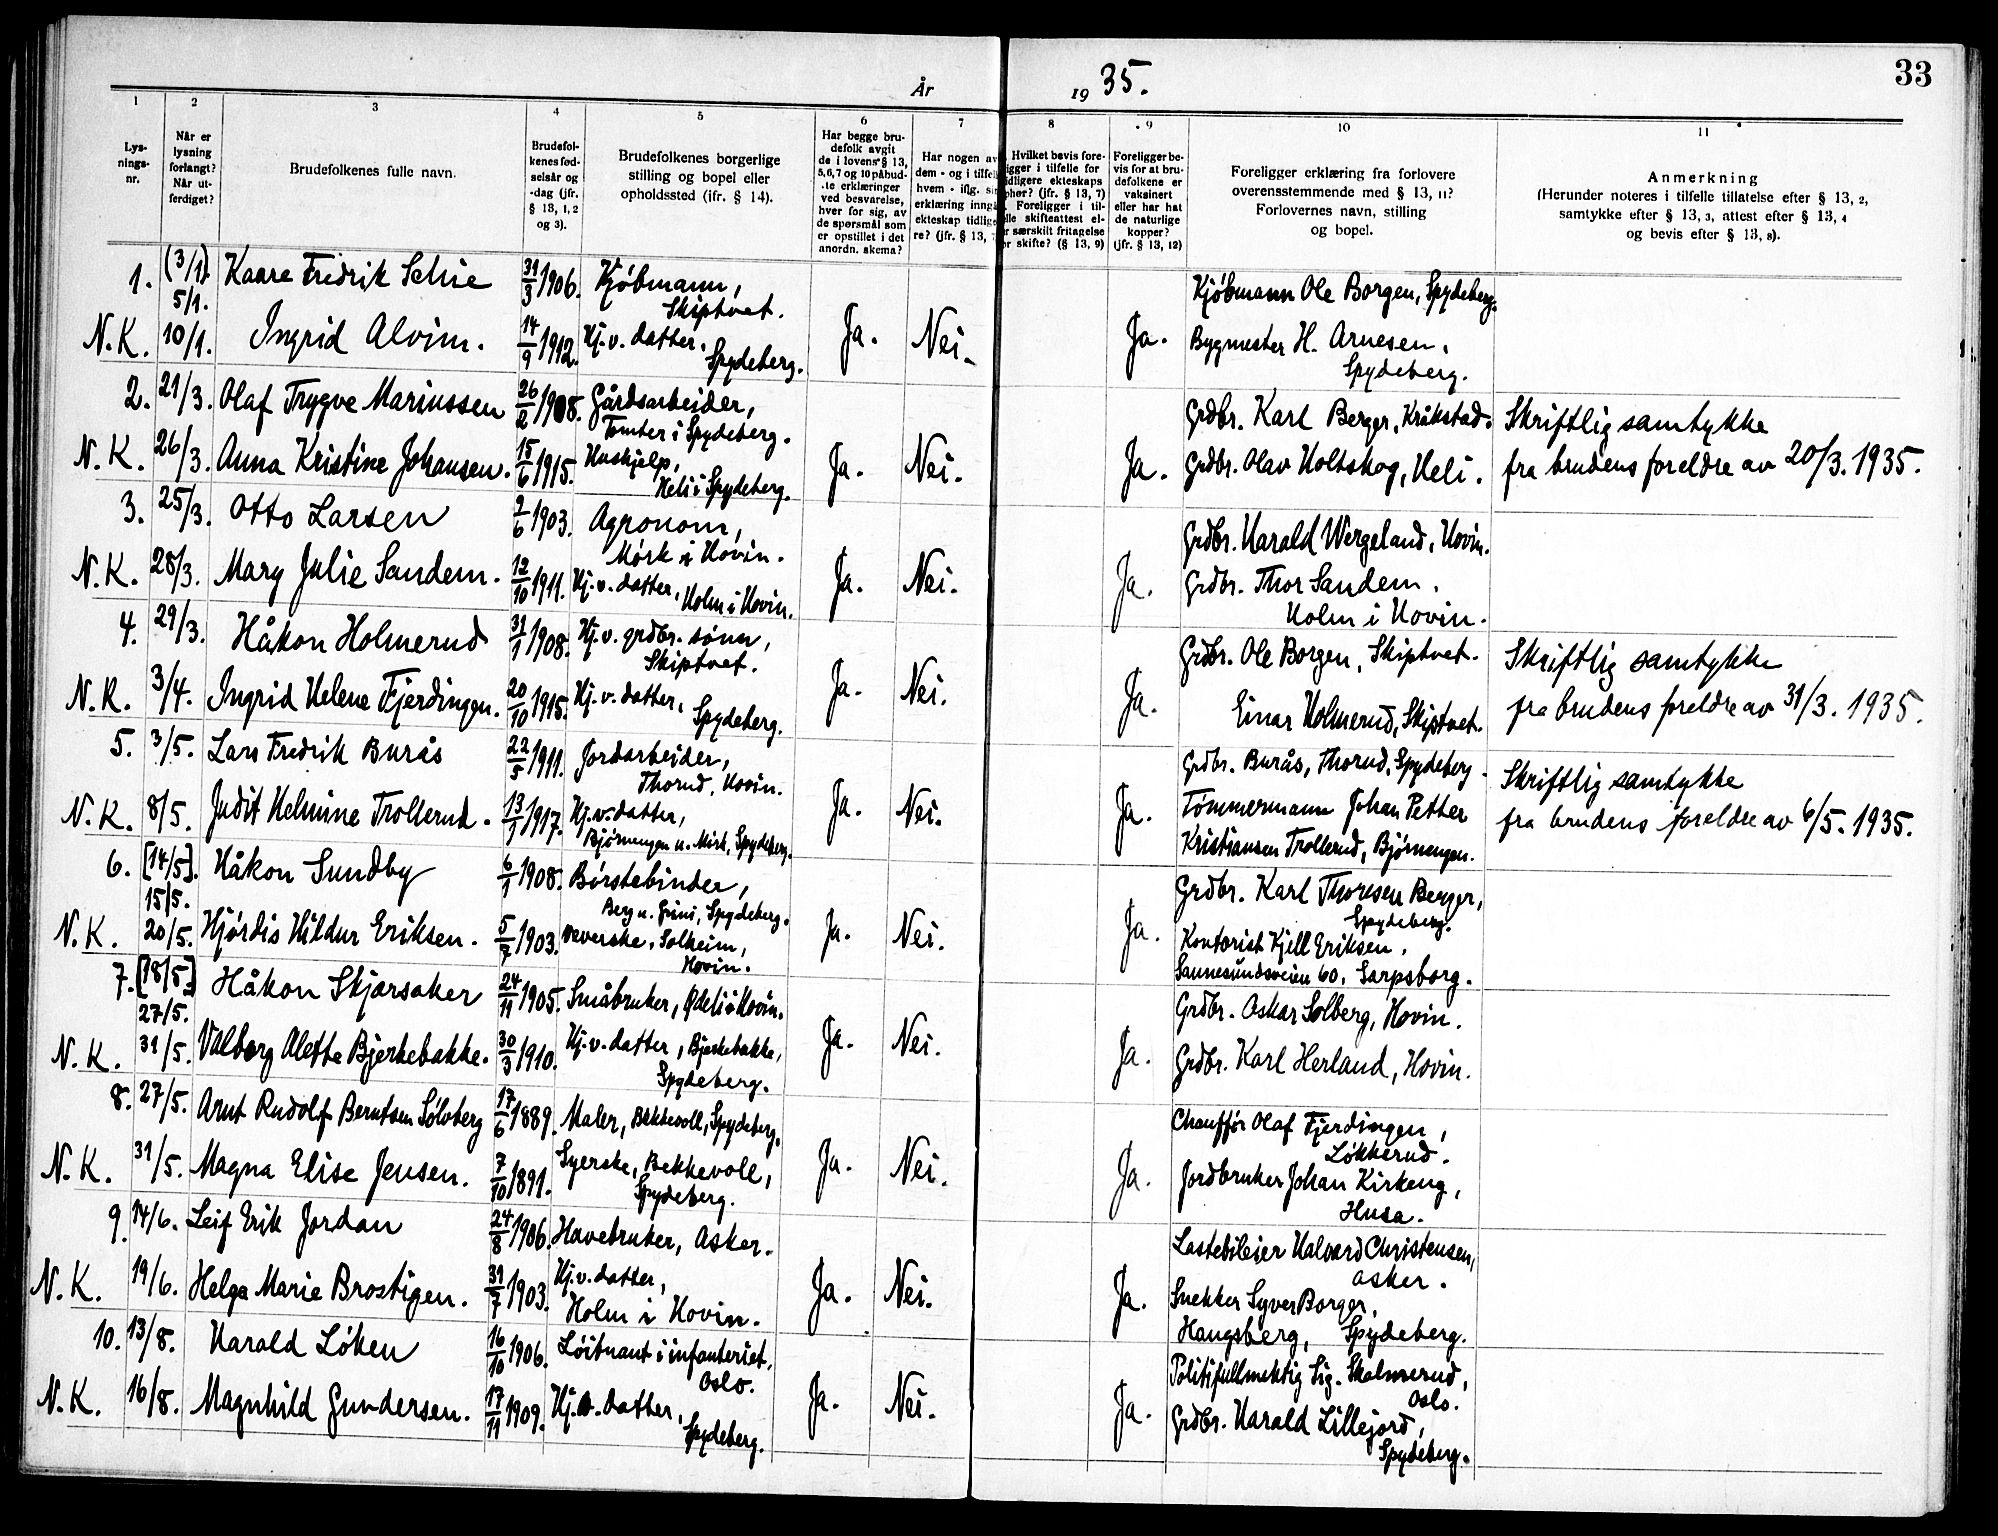 33
År 19 35.
1 2 3 4 5 6 7 8 9 10 11
Lys-
nings-
nr.
Når er
lysning
forlangt?
Når ut-
ferdiget?
Brudefolkenes fulle navn.
Brudefol-
kenes fød-
selsår og
-dag (jfr.
§ 13, 1, 2
og 3).
Brudefolkenes borgerlige
stilling og bopel eller
opholdssted (jfr. § 14).
Har begge bru-
defolk avgit
de i lovens § 13,
5,6,7 og 10 påbud-
te erklæringer
ved besvarelse,
hver for sig, av
de spørsmål som
er opstillet i det
anordn. skema?
Har nogen av
dem - og i tilfel
hvem - iflg. sin
erklæring inngå
ekteskap tidlige
re? (jfr. § 13, 7
Hvilket bevis fore-
igger i tilfelle for
idligere ekteskaps
phør? (jfr. § 13, 7)
Foreligger i til-
lle skifteattest el-
r særskilt fritagelse
or skifte? (§ 13, 9)
Foreligger be-
vis for at bru-
defolkene er
vaksinert
eller har hat
de naturlige
kopper?
(jfr. § 13, 12)
Foreligger erklæring fra forlovere
overensstemmende med § 13, 11?
Forlovernes navn, stilling
og bopel.
Anmerkning
(Herunder noteres i tilfelle tillatelse efter § 13, 2,
samtykke efter § 13, 3, attest efter § 13, 4
og bevis efter § 13, 8).
1. (3/1) Kaare Fredrik Schie 31/3 1906. Kjøbmann, Kjøbmann Ole Borgen, Spydeberg.
5/1. Skiptvet.
N.K. 10/1. Ingrid Alvim. 14/9 1912. Hj.v. datter, Spydeberg. Ja. Nei. Ja. Bygmester H. Arnesen, Spydeberg.
2. 21/3. Olaf Trygve Mariussen 26/2 1908. Gårdsarbeider, Grdbr. Karl Berger, Kråkstad. Skriftlig samtykke
Tomter i Spydeberg.
N.K. 26/3. Anna Kristine Johansen. 15/6 1915. Hushjelp, Heli i Spydeberg. Ja. Nei. Ja. Grdbr. Olav Holtskog, Heli. fra brudens foreldre av 20/3. 1935.
3. 25/3. Otto Larsen 9/6 1903. Agronom, Grdbr. Harald Wergeland, Hovin.
Mørk i Hovin.
N.K. 28/3. Mary Julie Sandem. 12/10 1911. Hj.v. datter, Holm i Hovin. Ja. Nei. Ja. Grdbr. Thor Sandem.
Holm i Hovin.
4. 29/3. Håkon Holmerud 31/1 1908. Hj.v. grdbr. sønn, Grdbr. Ole Borgen, Skiptvet. Skriftlig samtykke
Skiptvet.
N.K. 3/4. Ingrid Helene Fjerdingen. 20/10 1915. Hj.v. datter, Spydeberg. Ja. Nei. Ja. Einar Holmerud, Skiptvet. fra brudens foreldre av 31/3. 1935.
5. 3/5. Lars Fredrik Burås 22/5 1911. Jordarbeider, Grdbr. Burås, Thorud, Spydeberg Skriftlig samtykke
Thorud, Hovin.
N.K. 8/5. Judit Helmine Trollerud. 13/1 1917. Hj.v. datter, Ja. Nei. Ja. Tømmermann Johan Petter fra brudens foreldre av 6/5. 1935.
Bjørnengen u. Mørk, Spydeberg. Kristiansen Trollerud, Bjørnengen.
6. [14/5]. Håkon Sundby 6/1 1908. Børstebinder, Grdbr. Karl Thoresen Berger,
15/5. Berg u. Grini, Spydeberg. Spydeberg.
N.K. 20/5. Hjørdis Hildur Eriksen. 5/7 1903. Veverske, Solheim, Ja. Nei. Ja. Kontorist Kjell Eriksen,
Hovin. Sannesundsveien 60, Sarpsborg.
7. [18/5] Håkon Skjærsaker 24/11 1905. Småbruker, Ødeli i Hovin. Grdbr. Oskar Solberg, Hovin.
27/5.
N.K. 31/5. Valborg Alette Bjerkebakke. 30/3 1910. Hj.v. datter, Bjerkebakke, Ja. Nei. Ja. Grdbr. Karl Herland, Hovin.
Spydeberg.
8. 27/5. Arnt Rudolf Berntsen Sølvberg 17/6 1889. Maler, Bekkevoll, Spydeberg. Chauffør Olaf Fjerdingen,
Løkkerud.
N.K. 31/5. Magna Elise Jensen. 7/10 1891. Syerske, Bekkevoll, Ja. Nei. Ja. Jordbruker Johan Kirkeng,
Spydeberg. Husa.
9. 14/6. Leif Erik Jordan 24/8 1906. Havebruker, Asker. Lastebileier Halvard Christensen,
Asker.
N.K. 19/6. Helga Marie Brostigen. 31/7 1903. Hj.v. datter, Ja. Nei. Ja. Snekker Syver Borger,
Holm i Hovin. Haugsberg, Spydeberg.
10. 13/8. Harald Løken 16/10 1906. Løitnant i infanteriet, Politifullmektig Sig. Skolmerud,
Oslo. Oslo.
N.K. 16/8. Magnhild Gundersen. 17/11 1909. Hj.v. datter, Ja. Nei. Ja. Grdbr. Harald Lillejord,
Spydeberg. Spydeberg.